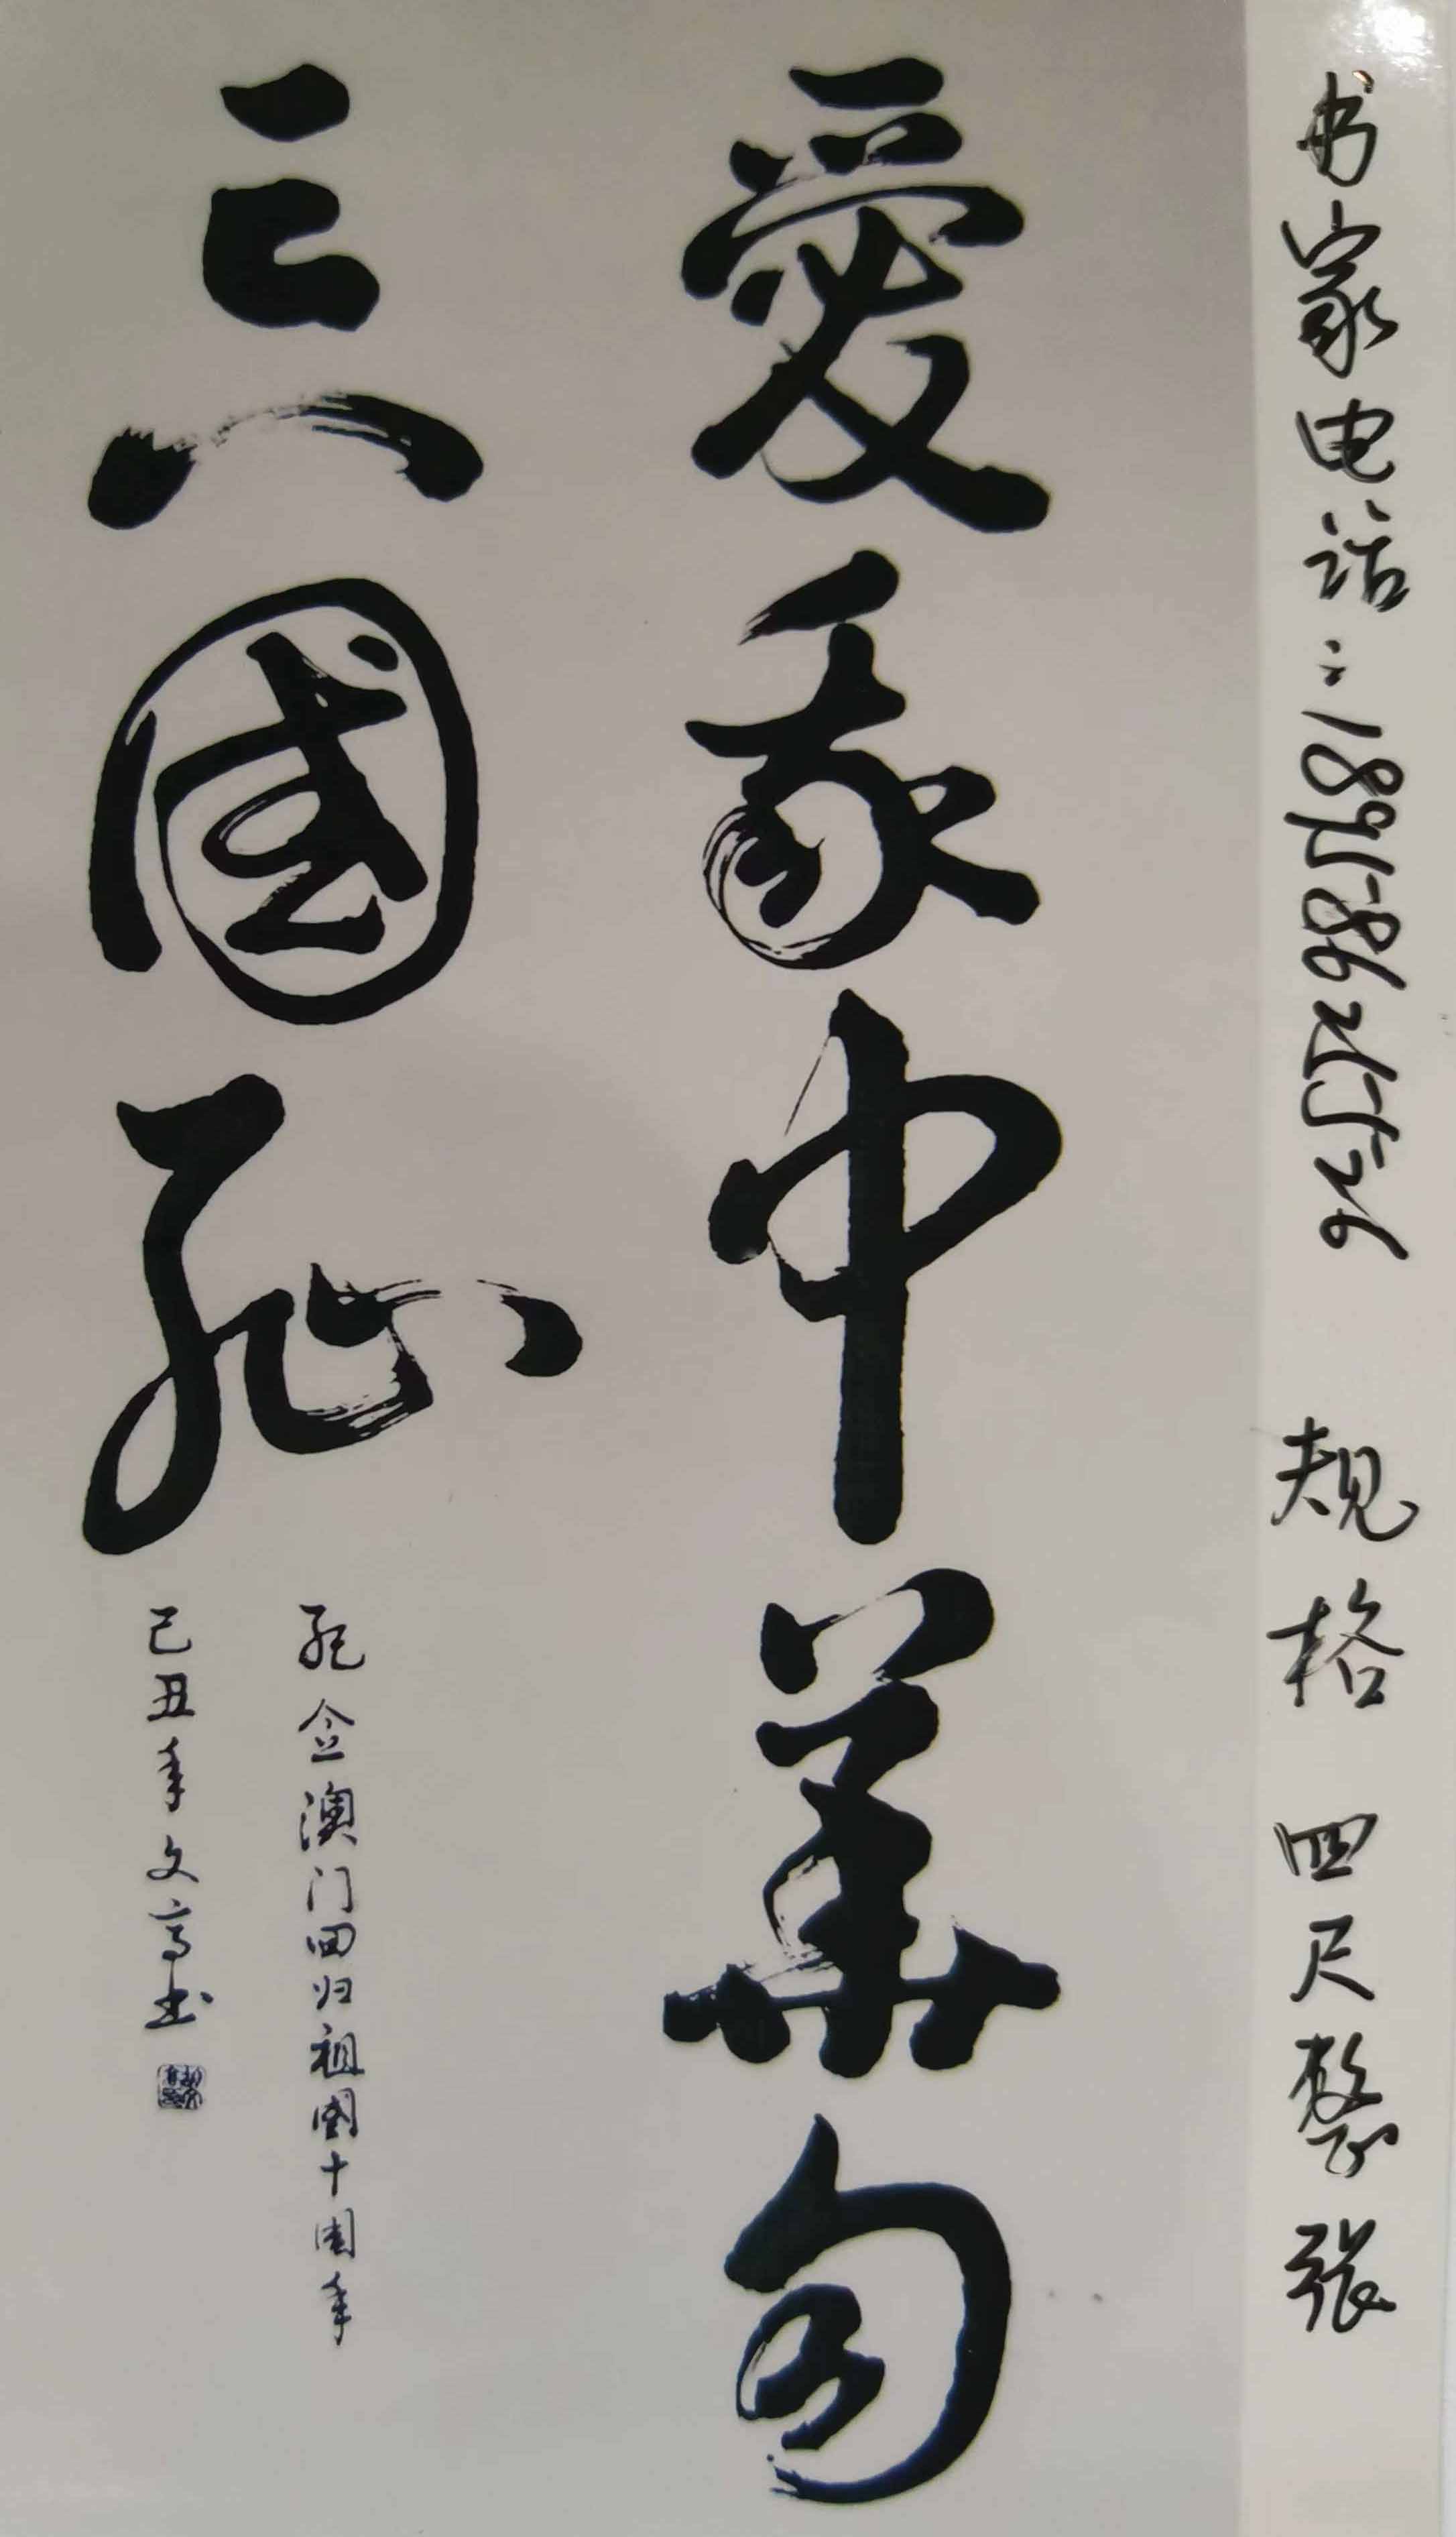 书家电话：18958625526 规格 四尺整张
愛我中華勿
忘國恥
纪念澳门回归祖国十周年
己丑年文高书